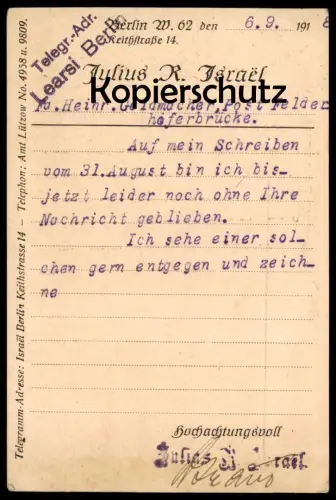 Telegr.-Adr.
Learsi Berlin
Berlin W. 62 den 6.9. 1918
Keithstraße 14.
Julius R. Israël
Kopierschutz
Fa. Heinr. Goldmacher, Post Felder
höferbrücke.
Auf mein Schreiben
vom 31.August bin ich bis-
jetzt leider noch ohne Ihre
Nachricht geblieben.
Ich sehe einer sol-
chen gern entgegen und zeich-
ne
Hochachtungsvoll
Julius R. Israël
Telegramm-Adresse: Israël Berlin Keithstrasse 14 — Telephon: Amt Lützow No. 4958 u. 9809.